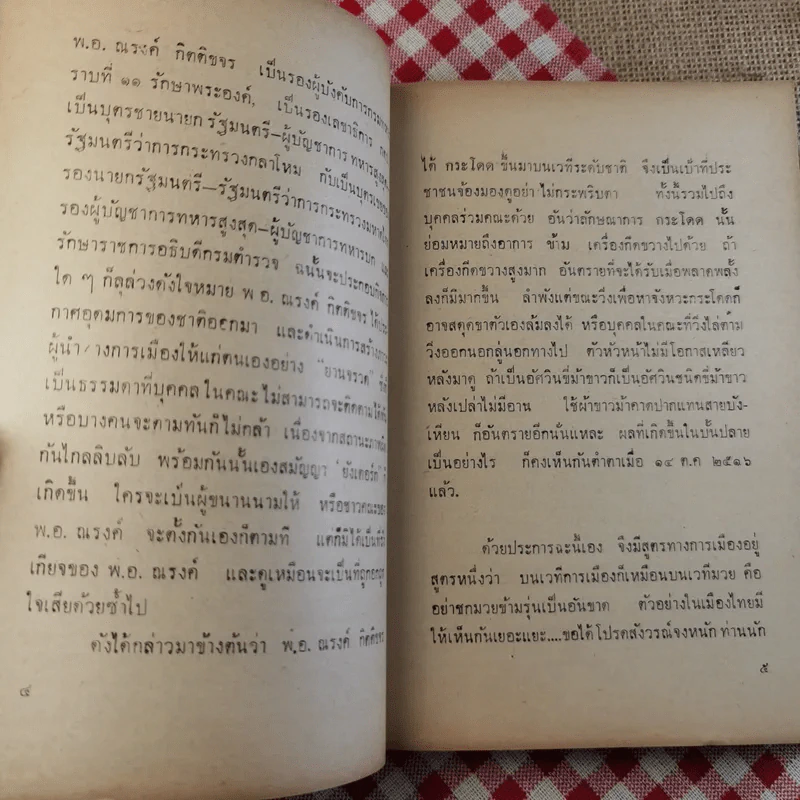 พ.อ. ณรงค์ กิตติขจร เป็นรองผู้บังคับการกรมทหาร
ราบที่ ๑๑ รักษาพระองค์, เป็นรองเลขาธิการ
เป็นบุตรชายนายกรัฐมนตรี–ผู้บัญชาการทหารสูงสุด–
รัฐมนตรีว่าการกระทรวงกลาโหม กับเป็นบุตรเขยของ
รองนายกรัฐมนตรี–รัฐมนตรีว่าการกระทรวงมหาดไทย
รองผู้บัญชาการทหารสูงสุด–ผู้บัญชาการทหารบก และ
รักษาราชการอธิบดีกรมตำรวจ ฉนั้นจะประกอบกิจการ
ใด ๆ ก็ลุล่วงดังใจหมาย พ อ. ณรงค์ กิตติขจร ได้ประ
กาศอุดมการของชาติออกมา และดำเนินการสร้างภาพ
ผู้นำทางการเมืองให้แก่ตนเองอย่าง "ยานจรวด"
เป็นธรรมดาที่บุคคลในคณะไม่สามารถจะติดตามได้ทัน
หรือบางคนจะตามทันก็ไม่กล้า เนื่องจากสถานะภาพผิด
กันไกลลิบลับ พร้อมกันนั้นเองสมัญญา "ยังเตอร์ก" ก็
เกิดขึ้น ใครจะเป็นผู้ขนานนามให้ หรือชาวคณะของ
พ.อ. ณรงค์ จะตั้งกันเองก็ตามที แต่ก็มิได้เป็นที่รัง
เกียจของ พ.อ. ณรงค์ และดูเหมือนจะเป็นที่ถูกอกถูก
ใจเสียด้วยซ้ำไป
ดังได้กล่าวมาข้างต้นว่า พ.อ. ณรงค์ กิตติขจร
๔
ได้ กระโดด ขึ้นมาบนเวทีระดับชาติ จึงเป็นเป้าที่ประ
ชาชนจ้องมองดูอย่างไม่กระพริบตา ทั้งนี้รวมไปถึง
บุคคลร่วมคณะด้วย อันว่าลักษณาการ กระโดด นั้น
ย่อมหมายถึงอาการ ข้าม เครื่องกีดขวางไปด้วย ถ้า
เครื่องกีดขวางสูงมาก อันตรายที่จะได้รับเมื่อพลาดพลั้ง
ลงก็มีมากขึ้น ลำพังแต่ขณะวิ่งเพื่อหาจังหวะกระโดดก็
อาจสดุดขาตัวเองล้มลงได้ หรือบุคคลในคณะที่วิ่งไล่ตาม
วิ่งออกนอกลู่นอกทางไป ตัวหัวหน้าไม่มีโอกาสเหลียว
หลังมาดู ถ้าเป็นอัศวินขี่ม้าขาวก็เป็นอัศวินชนิดขี่ม้าขาว
หลังเปล่าไม่มีอาน ใช้ผ้าขาวม้าคาดปากแทนสายบัง-
เหียน ก็อันตรายอีกนั่นแหละ ผลที่เกิดขึ้นในบั้นปลาย
เป็นอย่างไร ก็คงเห็นกันตำตาเมื่อ ๑๔ ต.ค ๒๕๑๖
แล้ว.
ด้วยประการฉะนี้เอง จึงมีสูตรทางการเมืองอยู่
สูตรหนึ่งว่า บนเวทีการเมืองก็เหมือนบนเวทีมวย คือ
อย่าชกมวยข้ามรุ่นเป็นอันขาด ตัวอย่างในเมืองไทยมี
ให้เห็นกันเยอะแยะ....ขอได้โปรดสังวรณ์จงหนัก ท่านนัก
๕